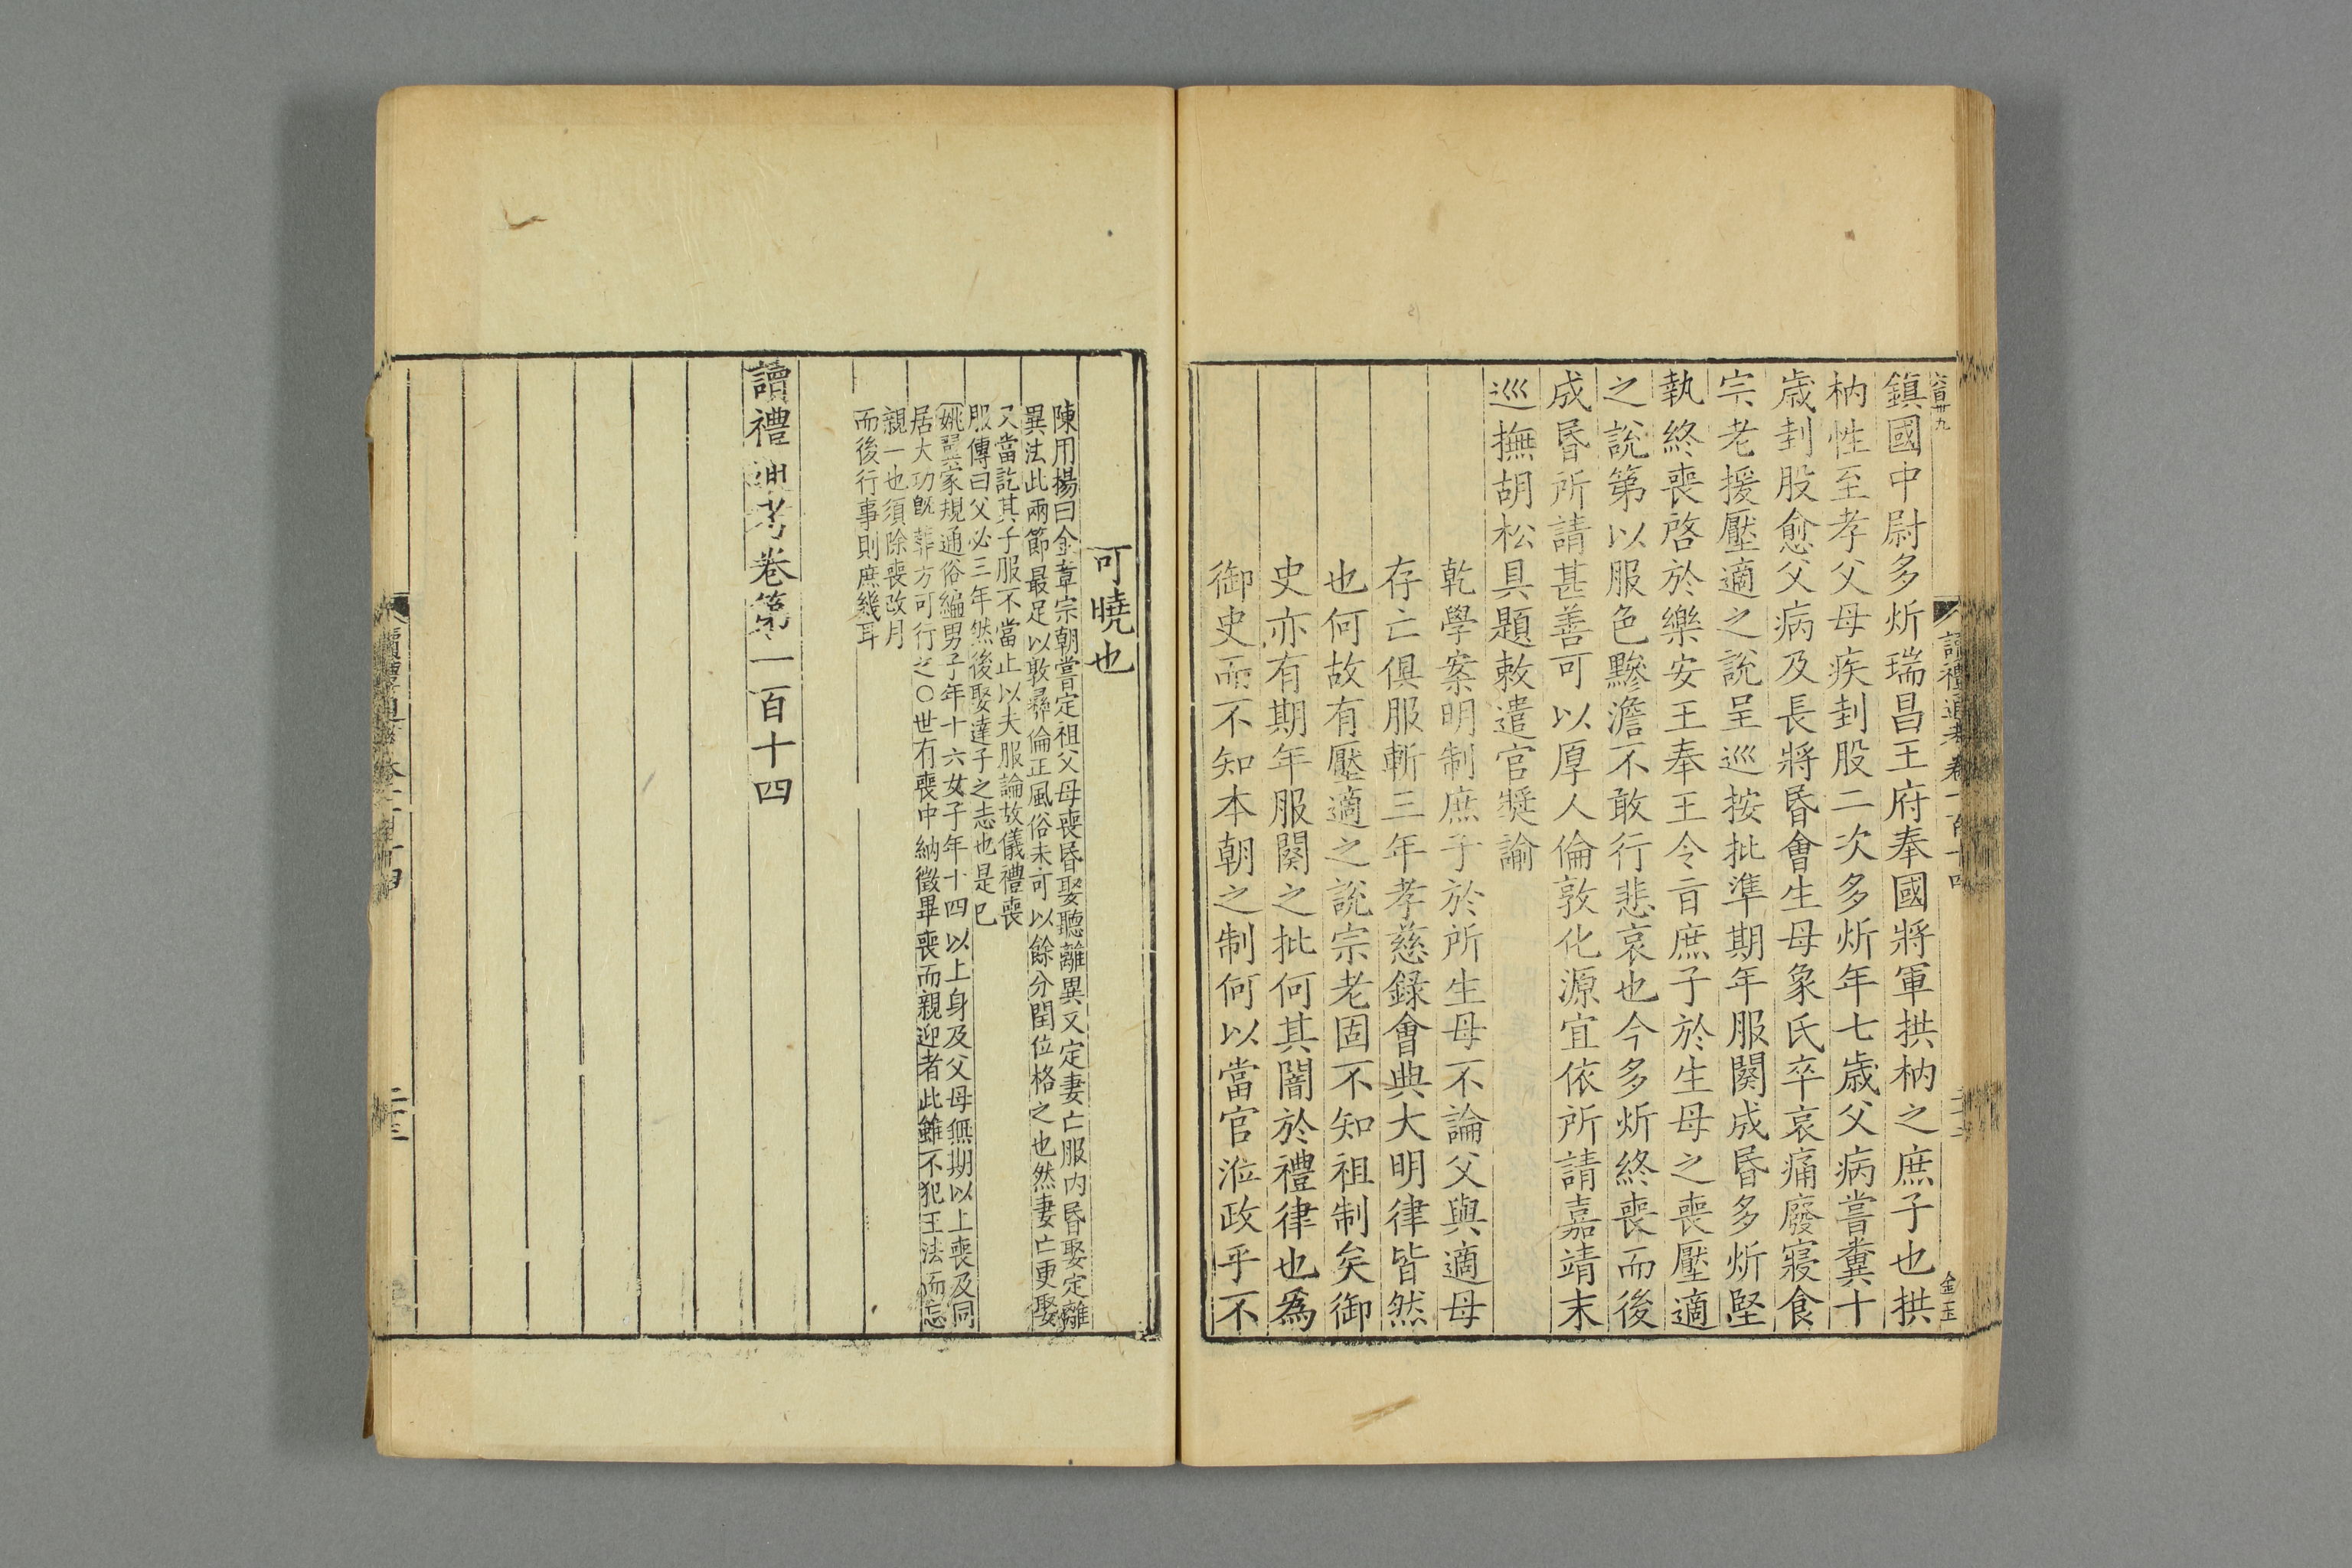 鎮國中尉多炘瑞昌王府奉國將軍拱枘之庶子也拱
枘性至孝父母疾刲股二次多炘年七歳父病嘗糞十
歳刲股愈父病及長將昏會生母象氏卒哀痛廢寢食
宗老援壓適之說呈巡按批準期年服闋成昏多炘堅
執終喪啓於樂安王奉王令㫖庶子於生母之喪壓適
之說第以服色黲澹不敢行悲哀也今多炘終喪而後
成昏所請甚善可以厚人倫敦化源宜依所請嘉靖末
巡撫胡松具題敕遣官奬諭
乾學案明制庶子於所生母不論父與適母
存亡俱服斬三年孝慈錄會典大明律皆然
也何故有壓適之說宗老固不知祖制矣御
史亦有期年服闋之批何其闇於禮律也為
御史而不知本朝之制何以當官涖政乎不
可曉也
陳用揚曰金章宗朝嘗定祖父母喪昏娶聽離異又定妻亡服内昏娶定離
異法此兩節最足以敦彛倫正風俗未可以餘分閏位格之也然妻亡更娶
又當訖其子服不當止以夫服論故儀禮喪
服傳曰父必三年然後娶達子之志也是已
姚翼家規通俗編男子年十六女子年十四以上身及父母無期以上喪及同
居大功旣葬方可行之〇世有喪中納徵畢喪而親迎者此雖不犯王法而忘
親一也須除喪改月
而後行事則庶幾耳
讀禮通考卷第一百十四
讀禮通考卷一百十四
金玉